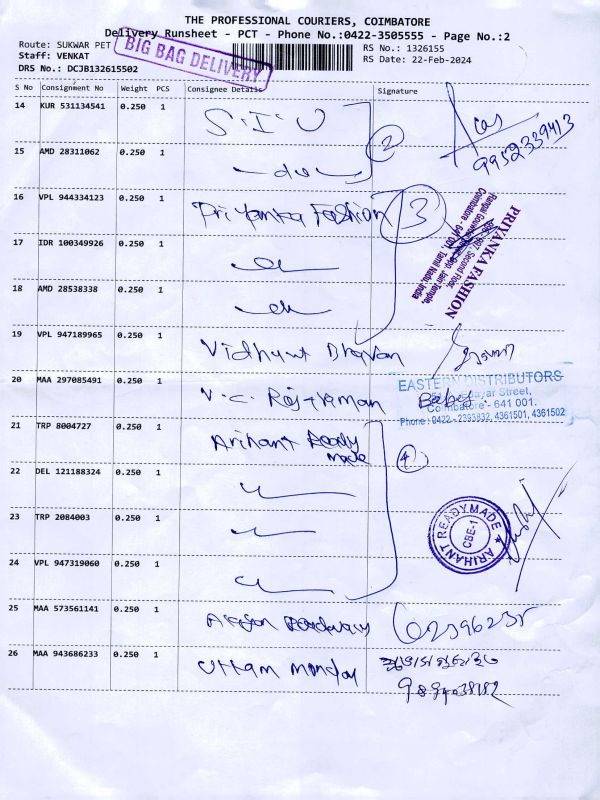 THE PROFESSIONAL COURIERS, COIMBATORE
Delivery Runsheet - PCT - Phone No.:0422-3505555 - Page No.:2
Route: SUKWAR PET
Staff: VENKAT
DRS No.: DCJB132615502
BIG BAG DELIVERY
RS No.: 1326155
RS Date: 22-Feb-2024
S No Consignment No Weight PCS Consignee Details Signature
14 KUR 531134541 0.250 1 S.I.U
2
9952339413
15 AMD 28311062 0.250 1 -do-
16 VPL 944334123 0.250 1 Priyanka Fashion
3
PRIYANKA FASHION
Second Floor,
Jain Temple,
Coimbatore - 641 001, Tamil Nadu, India
17 IDR 100349926 0.250 1
18 AMD 28538338 0.250 1
19 VPL 947189965 0.250 1 Vidhyut Dhavan
20 MAA 297085491 0.250 1 V.C. Rajtraman
EASTERN DISTRIBUTORS
Street,
Coimbatore - 641 001.
Phone : 0422 - 2393832, 4361501, 4361502
21 TRP 8004727 0.250 1 Arihant Ready
made
4
22 DEL 121188324 0.250 1
23 TRP 2084003 0.250 1
ARIHANT READYMADE
CBE-1
24 VPL 947319060 0.250 1
25 MAA 573561141 0.250 1 Roadways
26 MAA 943686233 0.250 1 Uttam Monday